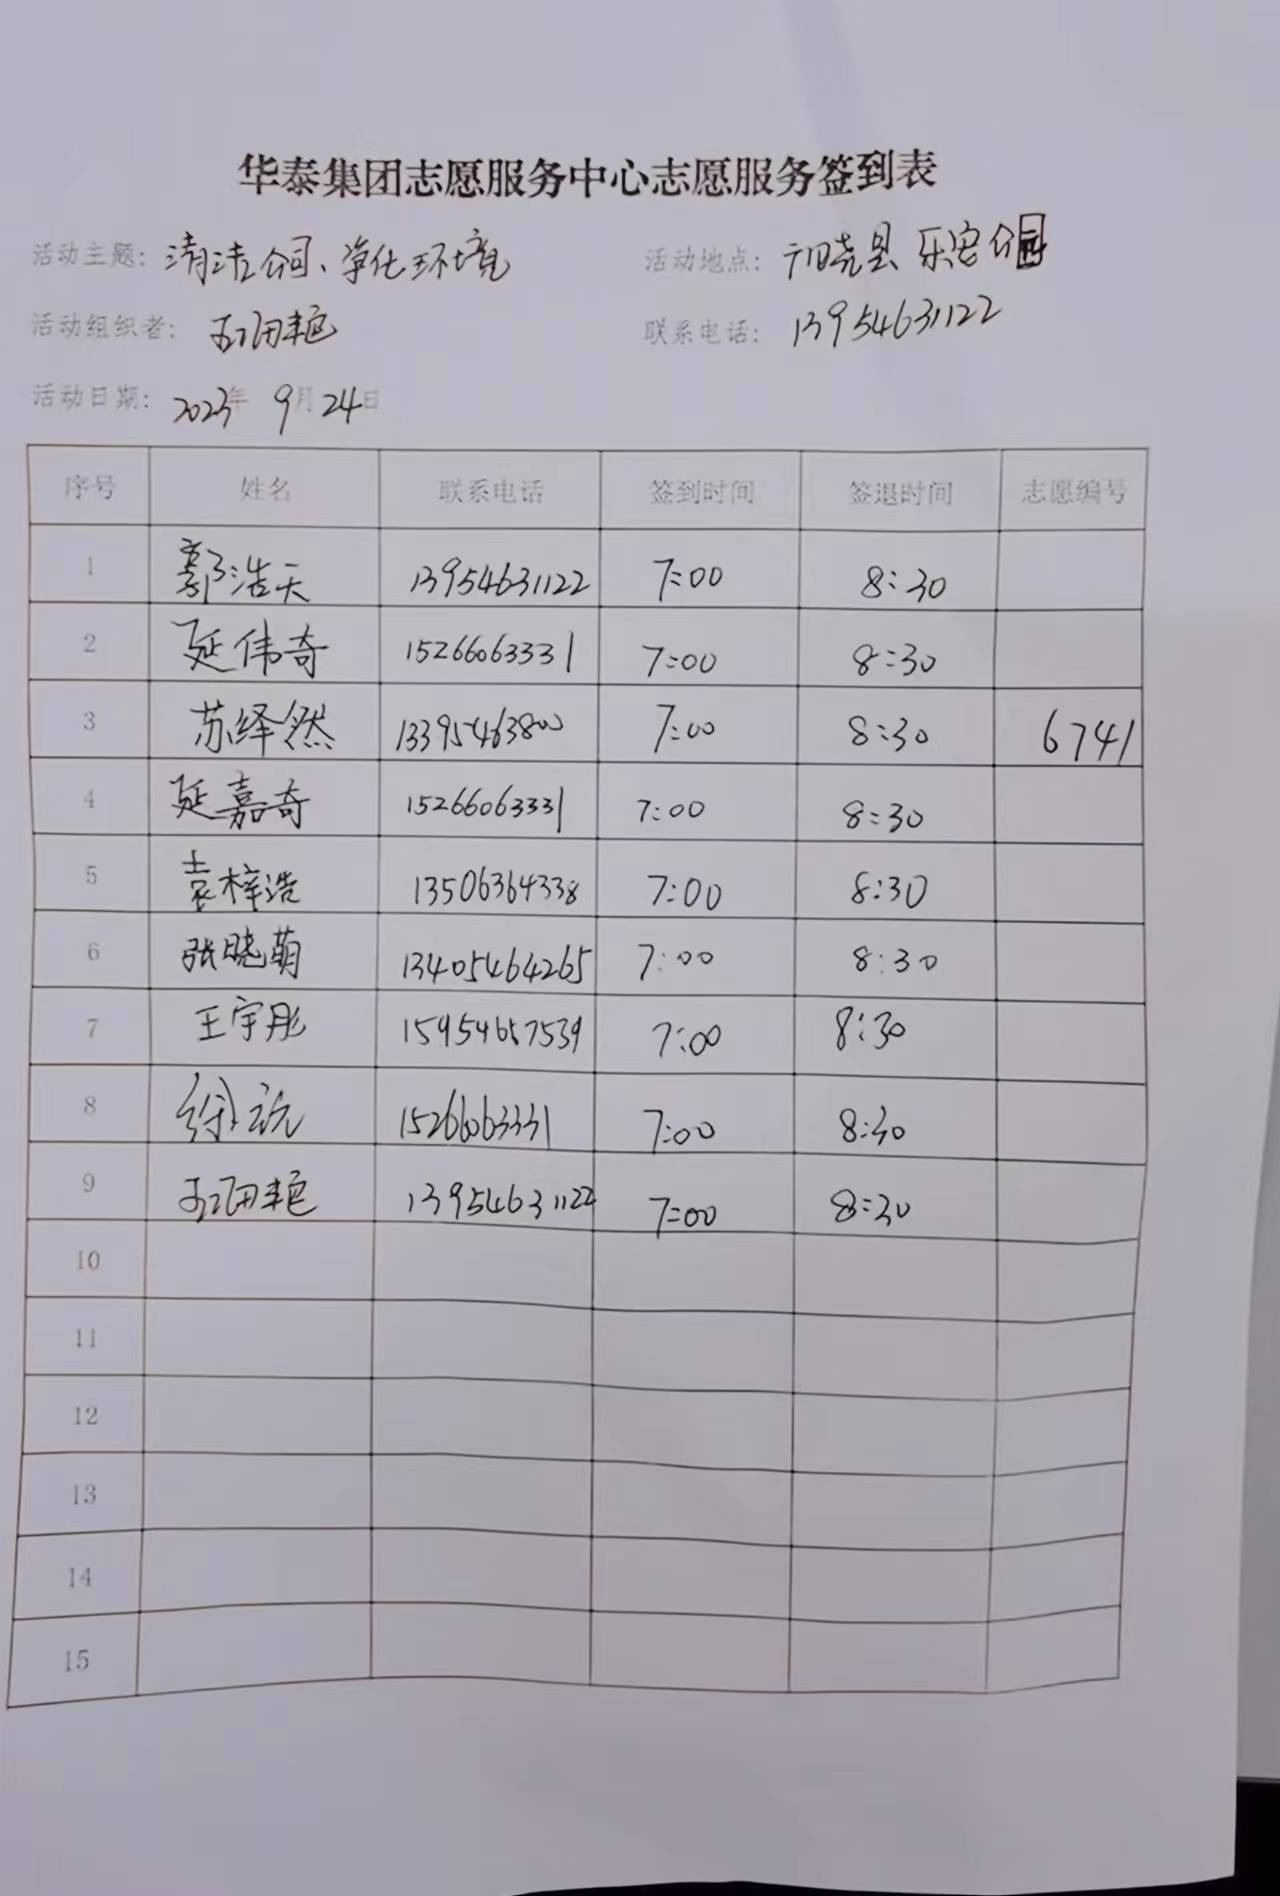 华泰集团志愿服务中心志愿服务签到表
活动主题: 清洁公园、净化环境 活动地点: 广饶县 乐安公园
活动组织者: 联系电话: 13954631122
活动日期: 2023年 9月24日
序号 姓名 联系电话 签到时间 签退时间 志愿编号
1 郭浩天 13954631122 7:00 8:30
2 延伟奇 15266063331 7:00 8:30
3 苏绎然 13395463800 7:00 8:30 6741
4 延嘉奇 15266063331 7:00 8:30
5 袁梓浩 13506364338 7:00 8:30
6 张晓萌 13405464265 7:00 8:30
7 王宇彤 15954657539 7:00 8:30
8 15266063331 7:00 8:30
9 13954631122 7:00 8:30
10
11
12
13
14
15